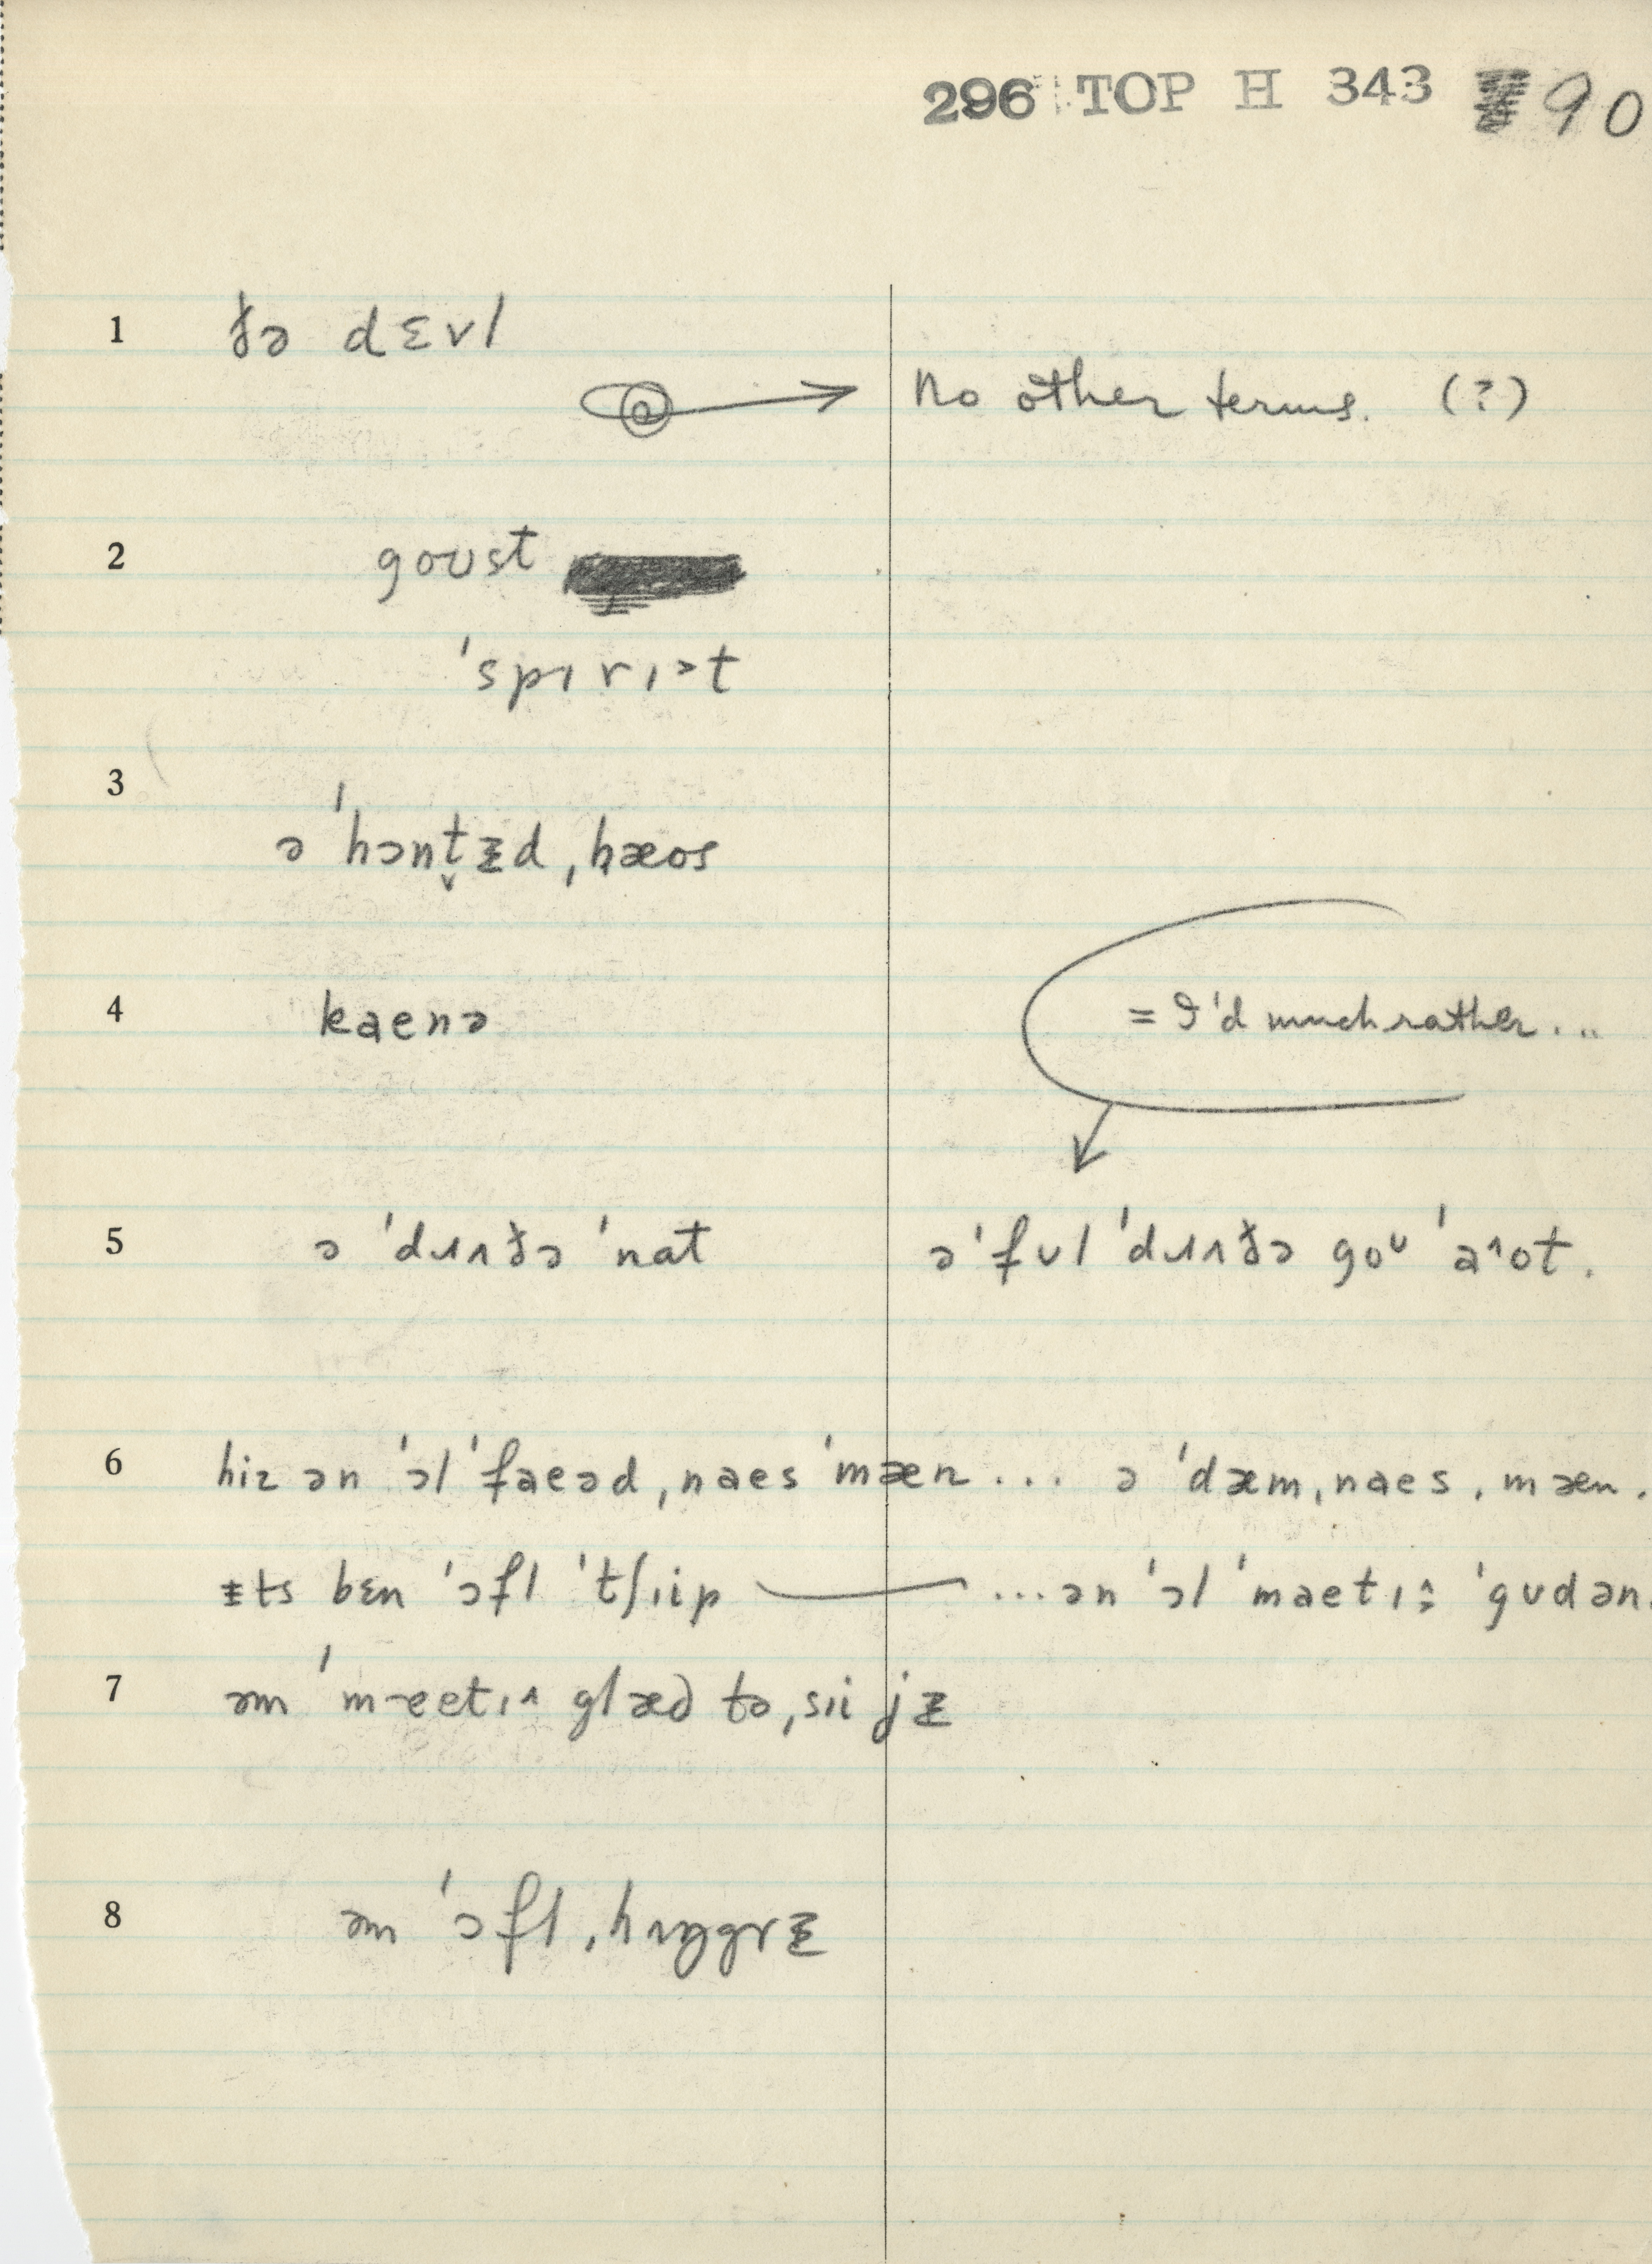 296 TOP H 343 90
1 ðə dɛvl
No other terms. (?)
2 goʊst
ˈspɪrɪ˃t
3 ə ˈhɔnt̬ᵻd ˌhæos
4 kaenə
= I'd much rather...
5 ə ˈdɹʌðə ˈnat
ə ˈfʊl ˈdɹʌðə goᶷ ˈa˄ot.
6 hiz ən ˈɔl ˈfaeəd ˌnaes ˈmæn ... ə ˈdæm ˌnaes ˌmæn.
ᵻts bɛn ˈɔfl ˈtʃɪip ...ən ˈɔl ˈmaetɪ ˈgʊdən.
7 əm ˈmaetɪ˄ glæd tə ˌsɪi jᵻ
8 əm ˈɔfl ˌhʌŋgrᵻ